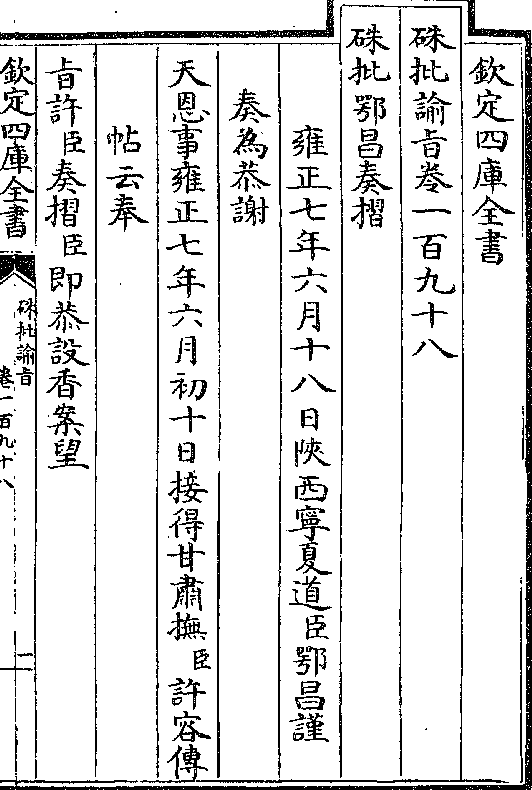 欽定四庫全書
硃批諭旨卷一百九十八
硃批鄂昌奏摺
雍正七年六月十八日陝西寧夏道臣鄂昌謹
奏為恭謝
天恩事雍正七年六月初十日接得甘肅撫臣許容傳
帖云奉
旨許臣奏摺臣即恭設香案望
欽定四庫全書
硃批諭旨
卷一百九十八
二